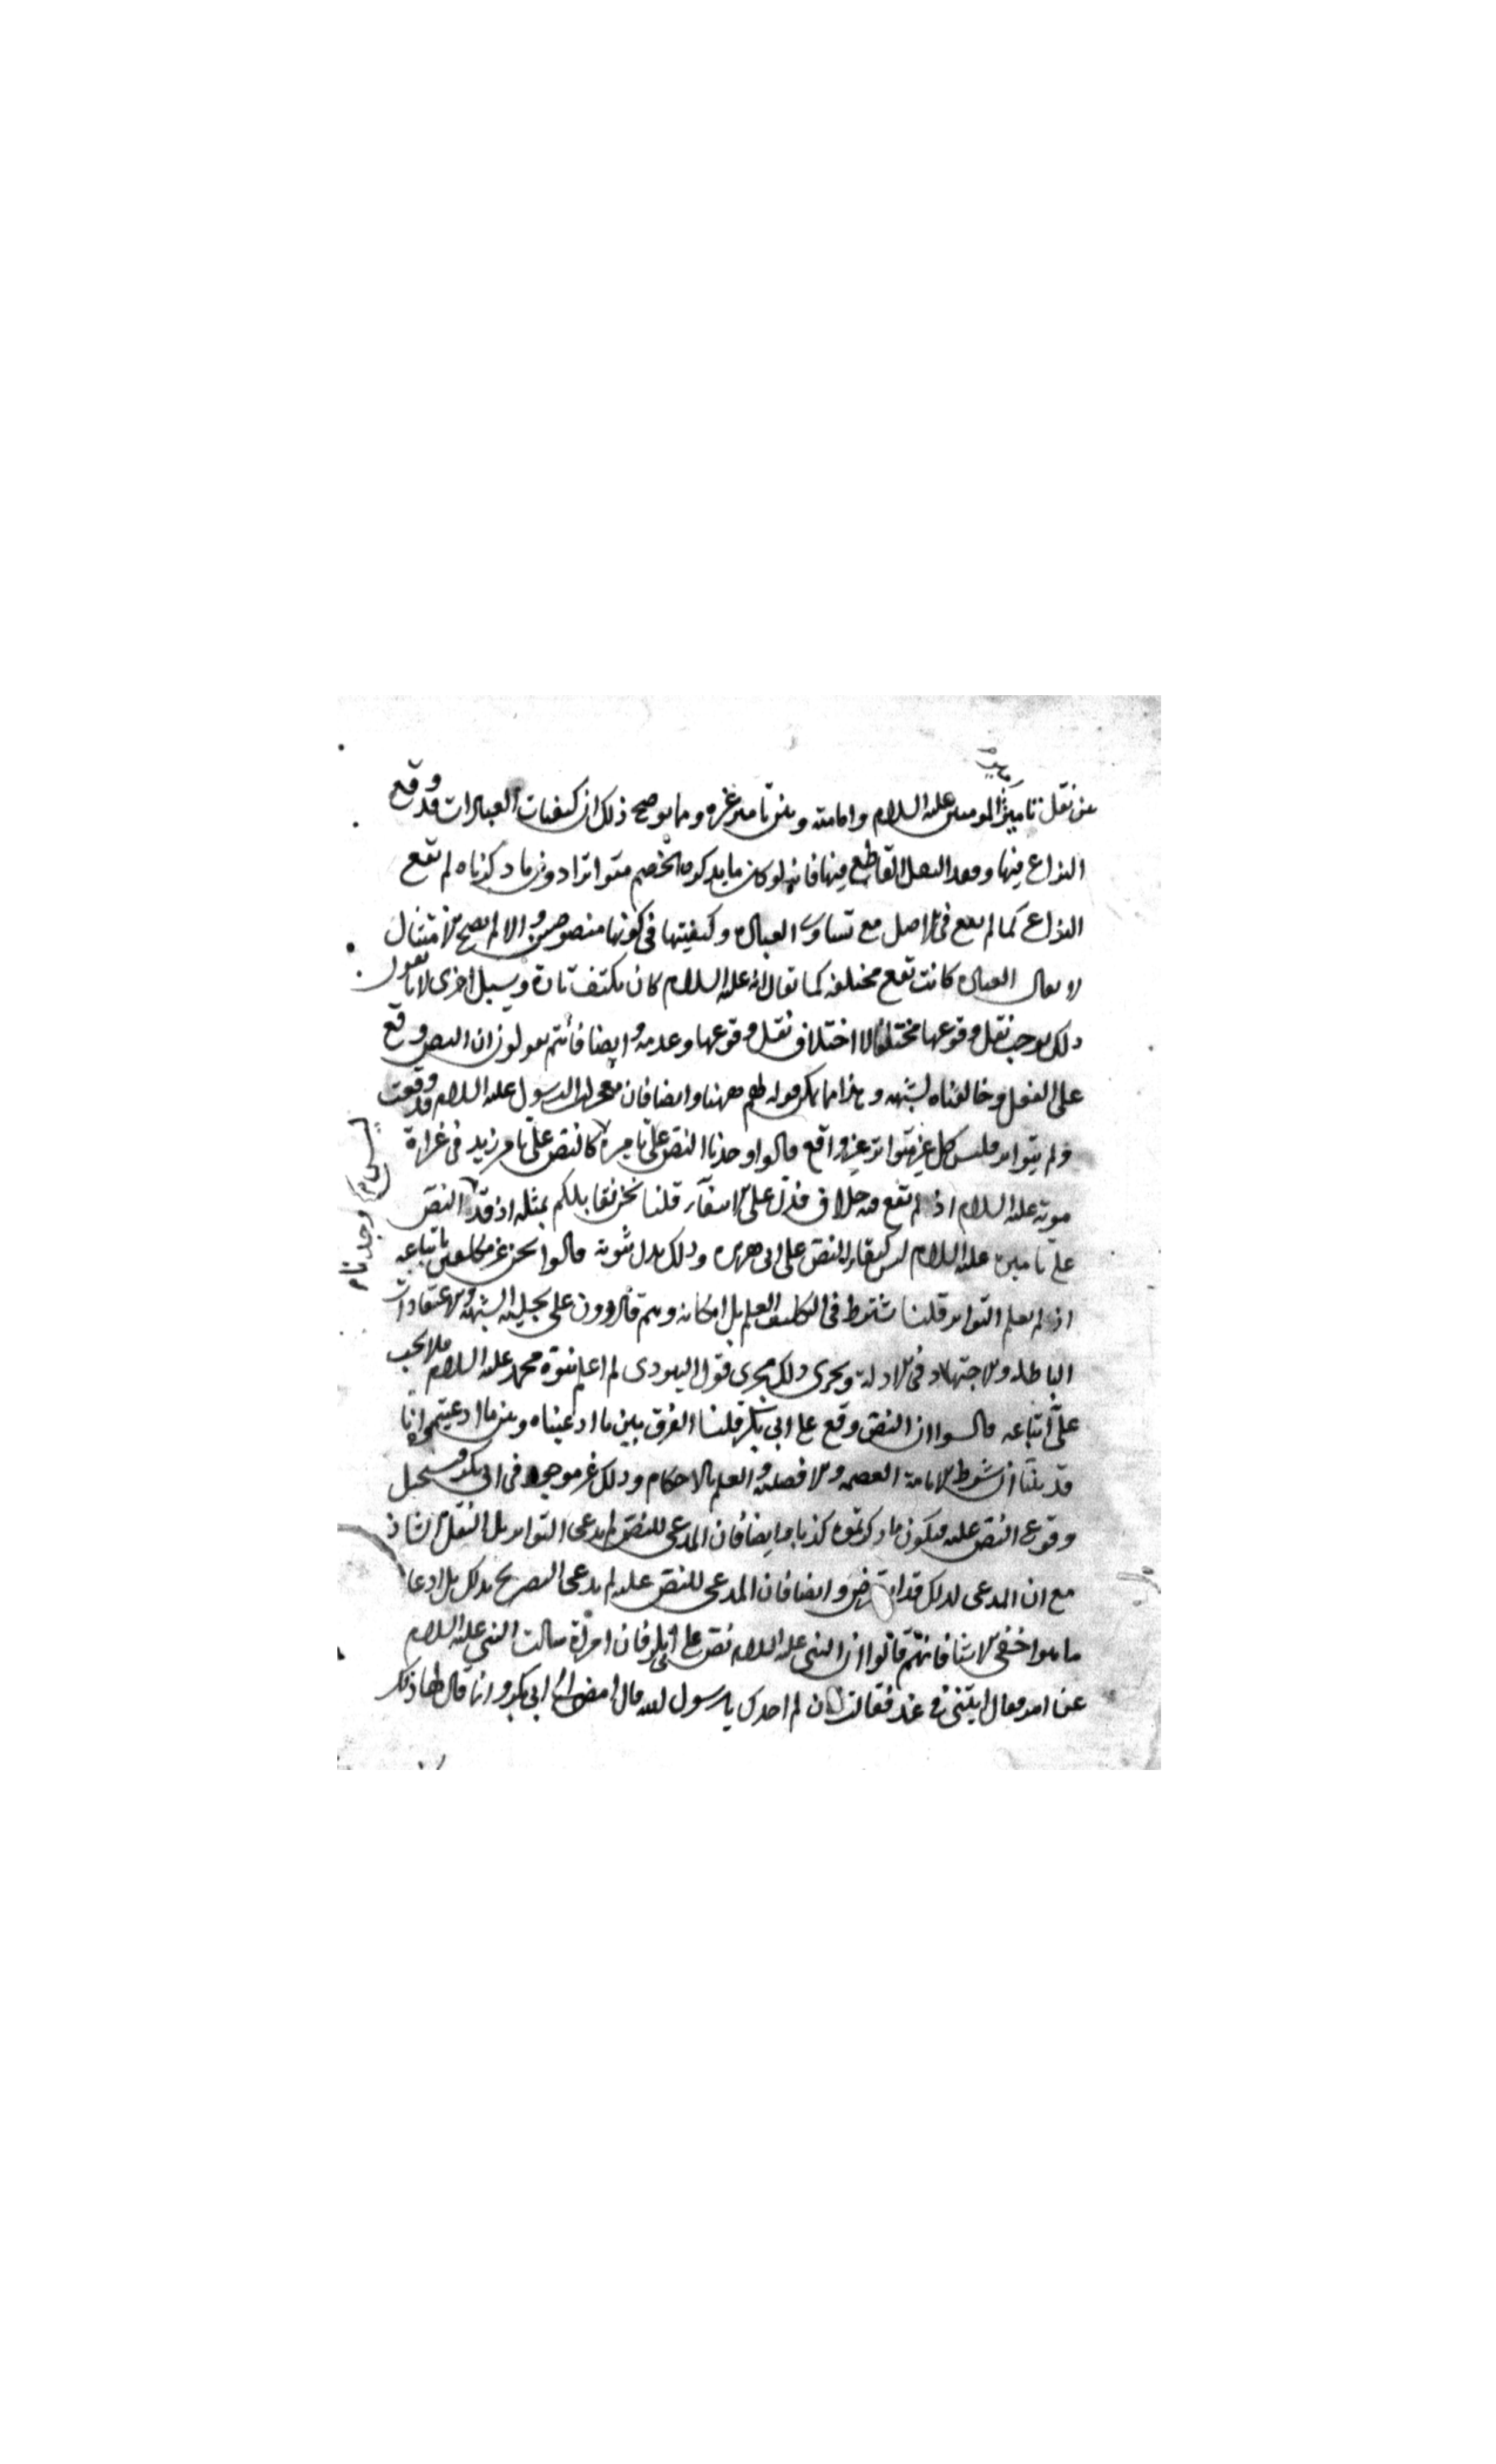 عن نقل تأمير المومنين عليه السلام وامامته وبين تامير غيره ومما يوضح ذلك ان كيفيات العبادات قد وقع
النزاع فيها وفقد النقل القاطع فيها فانه لو كان ما يذكره الخصم متواترا دون ما ذكرناه لم تقع
النزاع كما لم يقع في الاصل مع تساوى العبادة وكيفيتها في كونها منصوصين والا لم يصح الامتثال
لا يقال العبادة كانت تقع مختلفه كما نقال انه عليه السلام كان يكتف تارة ويسبل اخرى لانا نقول
ذلك يوجب نقل وقوعها مختلفا لا اختلاف نقل وقوعها وعدمه وايضا فأنتم تقولون ان النص وقع
على الفعل وخالفناه لشبهه وهذا مما يمكن قوله لهم ههنا وايضا فان معجزات الرسول عليه السلام قد وقعت
ولم يتواتر فليس كل غير متواتر غير واقع قالوا وجدنا النص على تاميره كالنص على تامر زيد في غزاة
موته عليه السلام اذ لم تقع فيه خلاف فدل على الانتفاء قلنا نحن نقابلكم بمثله اذ فقد النص
على تاميره عليه السلام ليس كفقد النص على ابى هريره وذلك يدل ثبوته قالوا نحن غير مكلفين باتباعه
اذ لم يعلم التواتر قلنا لا نشترط في التكليف العلم بل امكانه وهم قادرون على تجلية الشبهة والاعتقادات
الباطله والاجتهاد في الادلة ويجرى ذلك مجرى قول اليهودى لم اعلم نبوة محمد عليه السلام فلا يجب
علىّ اتباعه قالوا ان النص وقع على ابى بكر قلنا الفرق بين ما ادعيناه وبين ما ادعيتموه انّا
قد بينا ان شرط الامامة العصمه والافضليه والعلم بالاحكام وذلك غير موجود في ابى بكر فيستحيل
وقوع النص عليه فيكون ما ذكرتموه كذبا وايضا فان المدعى للنص لم يدعى التواتر بل النقل الشاذ
مع ان المدعى لذلك قد انقرض وايضا فان المدعى للنص عليه لم يدعى التصريح بذلك بل ادعا
ما هو اخفى الاشيا فانهم قالوا ان النبى عليه السلام نص على ابى بكر فان امرأة سالت النبى عليه السلام
عن امر فقال ايتنى في غد فقالت فان لم اجدك يا رسول الله قال امض الى ابى بكر وانما قال لها ذلك